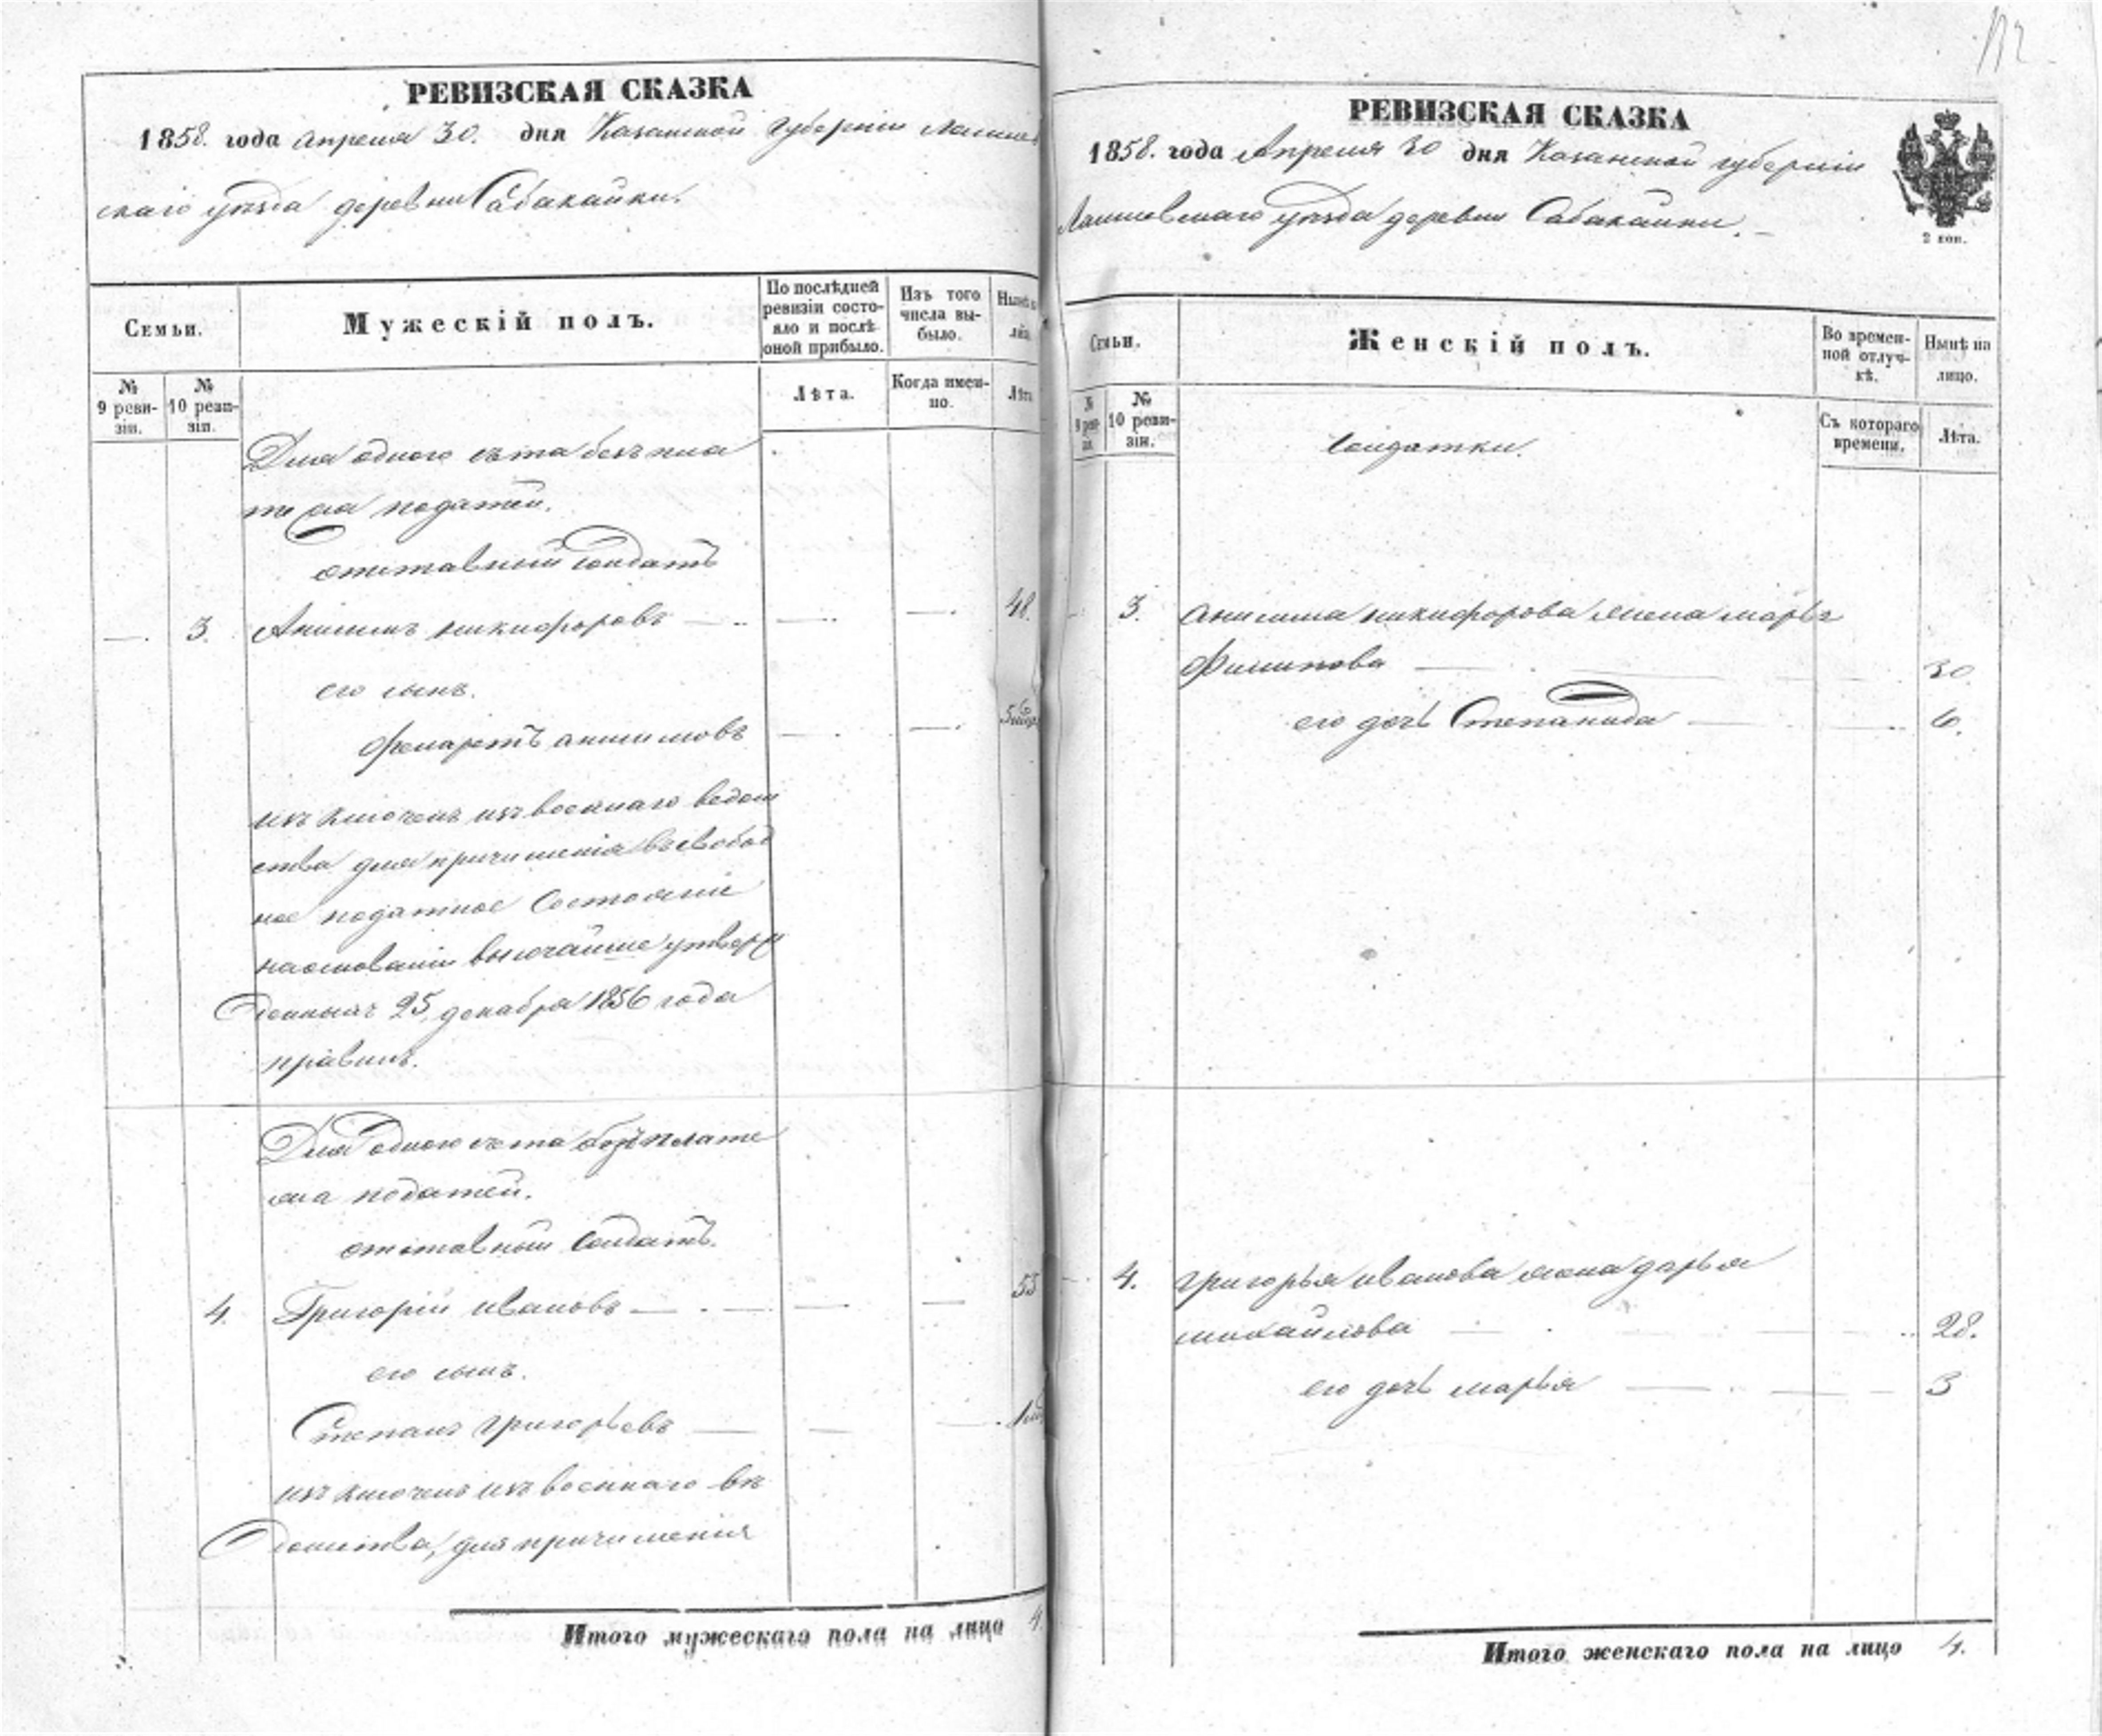 112
РЕВИЗСКАЯ СКАЗКА
1858. года апреля 30. дня Казанской губернiи Лаишев
скаго уѣзда деревни Сабакайки.
Семьи.
Мужескій полъ.
По послѣдней ревизіи состояло и послѣ оной прибыло.
Изъ того числа выбыло.
Нынѣ на лицо
№ 9 ревизіи.
№ 10 ревизіи.
Лѣта.
Когда именно.
Лѣта
Для одного счета безъ пла
тежа податей.
отставный солдатъ
— 3. Анисимъ никифоровъ — — — 48.
его сынъ.
Филаретъ анисимовъ — — 5
изключенъ изъ военнаго ведом
ства для причисленія въ свобод
ное податное состояніе
на основаніи высочайше утверж
денныхъ 25 декабря 1856 года
правилъ.
Для одного счета безъ плате
жа податей.
отставный солдатъ.
4. Григорій ивановъ — — — — 53
его сынъ.
Степанъ григорьевъ — — — 1
изключенъ изъ военнаго вѣ
домства, для причисленія
Итого мужескаго пола на лицо 4.
РЕВИЗСКАЯ СКАЗКА
1858. года Апреля 30 дня Казанской губернiи
Лаишевскаго уѣзда деревни Сабакайки.
2 коп.
Семьи.
Женскій полъ.
Во временной отлучкѣ.
Нынѣ на лицо.
№ 9 ревизіи.
№ 10 ревизіи.
Съ котораго времени.
Лѣта.
Солдатки.
3. Анисима никифорова жена марья
Филипова — — 30
его дочь Степанида — — 6.
4. григорья иванова жена дарья
михайлова — — 28.
его дочь марья — — 3
Итого женскаго пола на лицо 4.